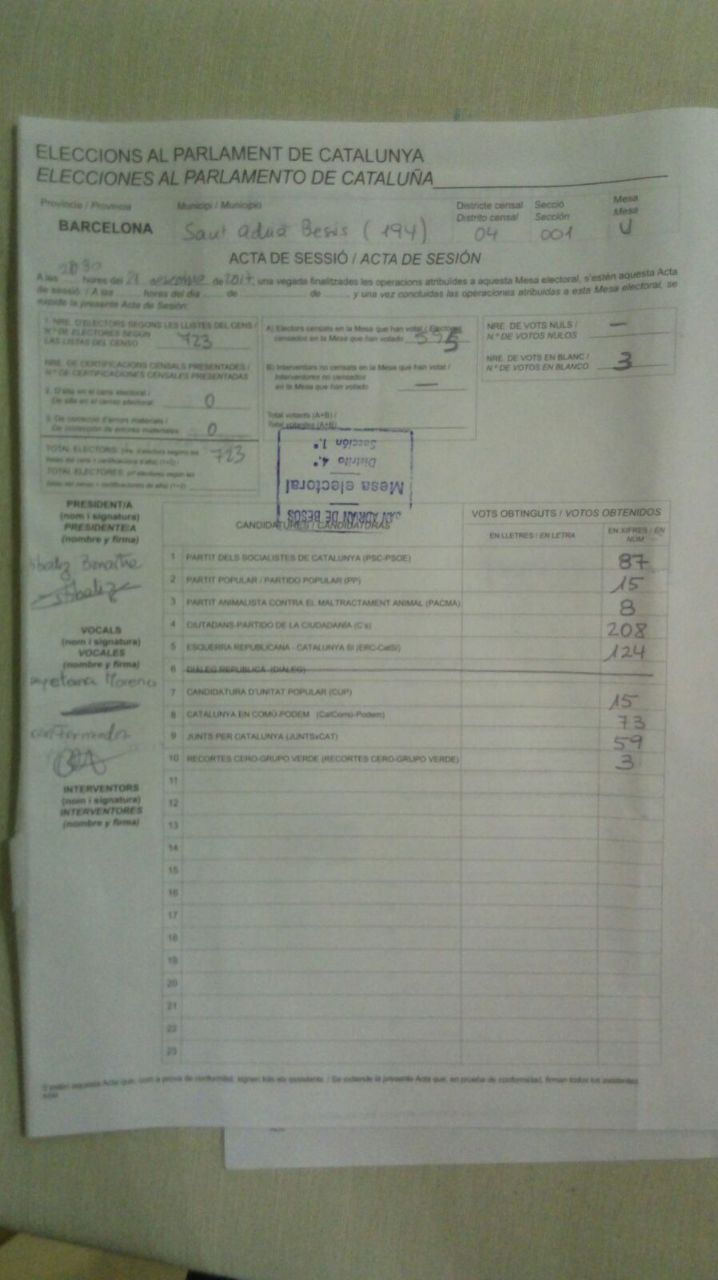 ELECCIONS AL PARLAMENT DE CATALUNYA
ELECCIONES AL PARLAMENTO DE CATALUÑA
Província / Provincia
BARCELONA
Municipi / Municipio
Sant Adrià Besòs (194)
Districte censal
Distrito censal
04
Secció
Sección
001
Mesa
Mesa
U
ACTA DE SESSIÓ / ACTA DE SESIÓN
A les 20:30 hores del 21 de 2017, una vegada finalitzades les operacions atribuïdes a aquesta Mesa electoral, s'estén aquesta Acta
de sessió. / A las hores del día de de y una vez concluidas las operaciones atribuidas a esta Mesa electoral, se
expide la presente Acta de Sesión:
1. NRE. D'ELECTORS SEGONS LES LLISTES DEL CENS /
N.º DE ELECTORES SEGÚN
LAS LISTAS DEL CENSO 723
NRE. DE CERTIFICACIONS CENSALS PRESENTADES /
N.º DE CERTIFICACIONES CENSALES PRESENTADAS
2. D'alta en el cens electoral /
De alta en el censo electoral 0
3. De correcció d'errors materials /
De corrección de errores materiales 0
TOTAL ELECTORS: 723
TOTAL ELECTORES:
A) Electors censats en la Mesa que han votat / Electores
censados en la Mesa que han votado 595
B) Interventors no censats en la Mesa que han votat /
Interventores no censados
en la Mesa que han votado —
Total votants (A+B) /
Total votantes (A+B)
NRE. DE VOTS NULS /
N.º DE VOTOS NULOS —
NRE. DE VOTS EN BLANC /
N.º DE VOTOS EN BLANCO 3
SAN ADRIAN DE BESOS
Mesa electoral
Distrito 4.º
Sección 1.ª
PRESIDENT/A
(nom i signatura)
PRESIDENTE/A
(nombre y firma)
VOCALS
(nom i signatura)
VOCALES
(nombre y firma)
Moreno
INTERVENTORS
(nom i signatura)
INTERVENTORES
(nombre y firma)
CANDIDATURES / CANDIDATURAS
VOTS OBTINGUTS / VOTOS OBTENIDOS
EN LLETRES / EN LETRA
EN XIFRES / EN NÚM
1 PARTIT DELS SOCIALISTES DE CATALUNYA (PSC-PSOE) 87
2 PARTIT POPULAR / PARTIDO POPULAR (PP) 15
3 PARTIT ANIMALISTA CONTRA EL MALTRACTAMENT ANIMAL (PACMA) 8
4 CIUTADANS-PARTIDO DE LA CIUDADANÍA (C's) 208
5 ESQUERRA REPUBLICANA - CATALUNYA SÍ (ERC-CatSí) 124
6 DIÀLEG REPUBLICÀ (DIÀLEG)
7 CANDIDATURA D'UNITAT POPULAR (CUP) 15
8 CATALUNYA EN COMÚ-PODEM (CatComú-Podem) 73
9 JUNTS PER CATALUNYA (JUNTSxCAT) 59
10 RECORTES CERO-GRUPO VERDE (RECORTES CERO-GRUPO VERDE) 3
11
12
13
14
15
16
17
18
19
20
21
22
23
S'estén aquesta Acta que, com a prova de conformitat, signen tots els assistents. / Se extiende la presente Acta que, en prueba de conformidad, firman todos los asistentes.